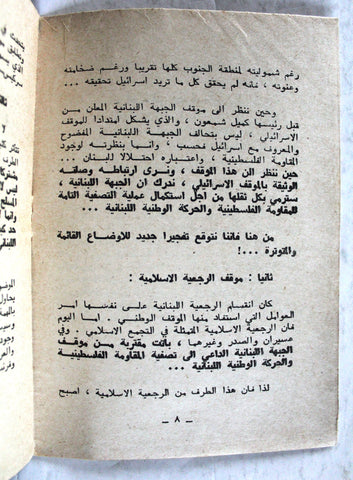 رغم شموليته لمنطقة الجنوب كلها تقريبا ورغم ضخامته
وعنوته ، فانه لم يحقق كل ما تريد اسرائيل تحقيقه ...
وحين ننظر الى موقف الجبهة اللبنانية المعلن من
قبل رئيسها كميل شمعون ، والذي يشكل امتدادا للموقف
الاسرائيلي ، ليس بتحالف الجبهة اللبنانية المفضوح
والمعروف مع اسرائيل فحسب ، وانما بنظرته لوجود
المقاومة الفلسطينية ، واعتباره احتلالا للبنان ...
حين ننظر الى هذا الموقف ، ونرى ارتباطه وصلاته
الوثيقة بالموقف الاسرائيلي ، ندرك ان الجبهة اللبنانية ،
سترمي بكل ثقلها من اجل استكمال عملية التصفية التامة
للمقاومة الفلسطينية والحركة الوطنية اللبنانية ...
من هنا فاننا نتوقع تفجيرا جديد للاوضاع القائمة
والمتوترة ...!
ثانيا : موقف الرجعية الاسلامية :
كان انقسام الرجعية اللبنانية على نفسها ابرز
العوامل التي استفاد منها الموقف الوطني . اما اليوم
فان الرجعية الاسلامية المتمثلة في التجمع الاسلامي . وفي
عسيران والصدر وغيرهما ، باتت مقتربة من موقف
الجبهة اللبنانية الداعي الى تصفية المقاومة الفلسطينية
والحركة الوطنية اللبنانية ...
لذا فان هذا الطرف من الرجعية الاسلامية ، اصبح
ـ ٨ ـ